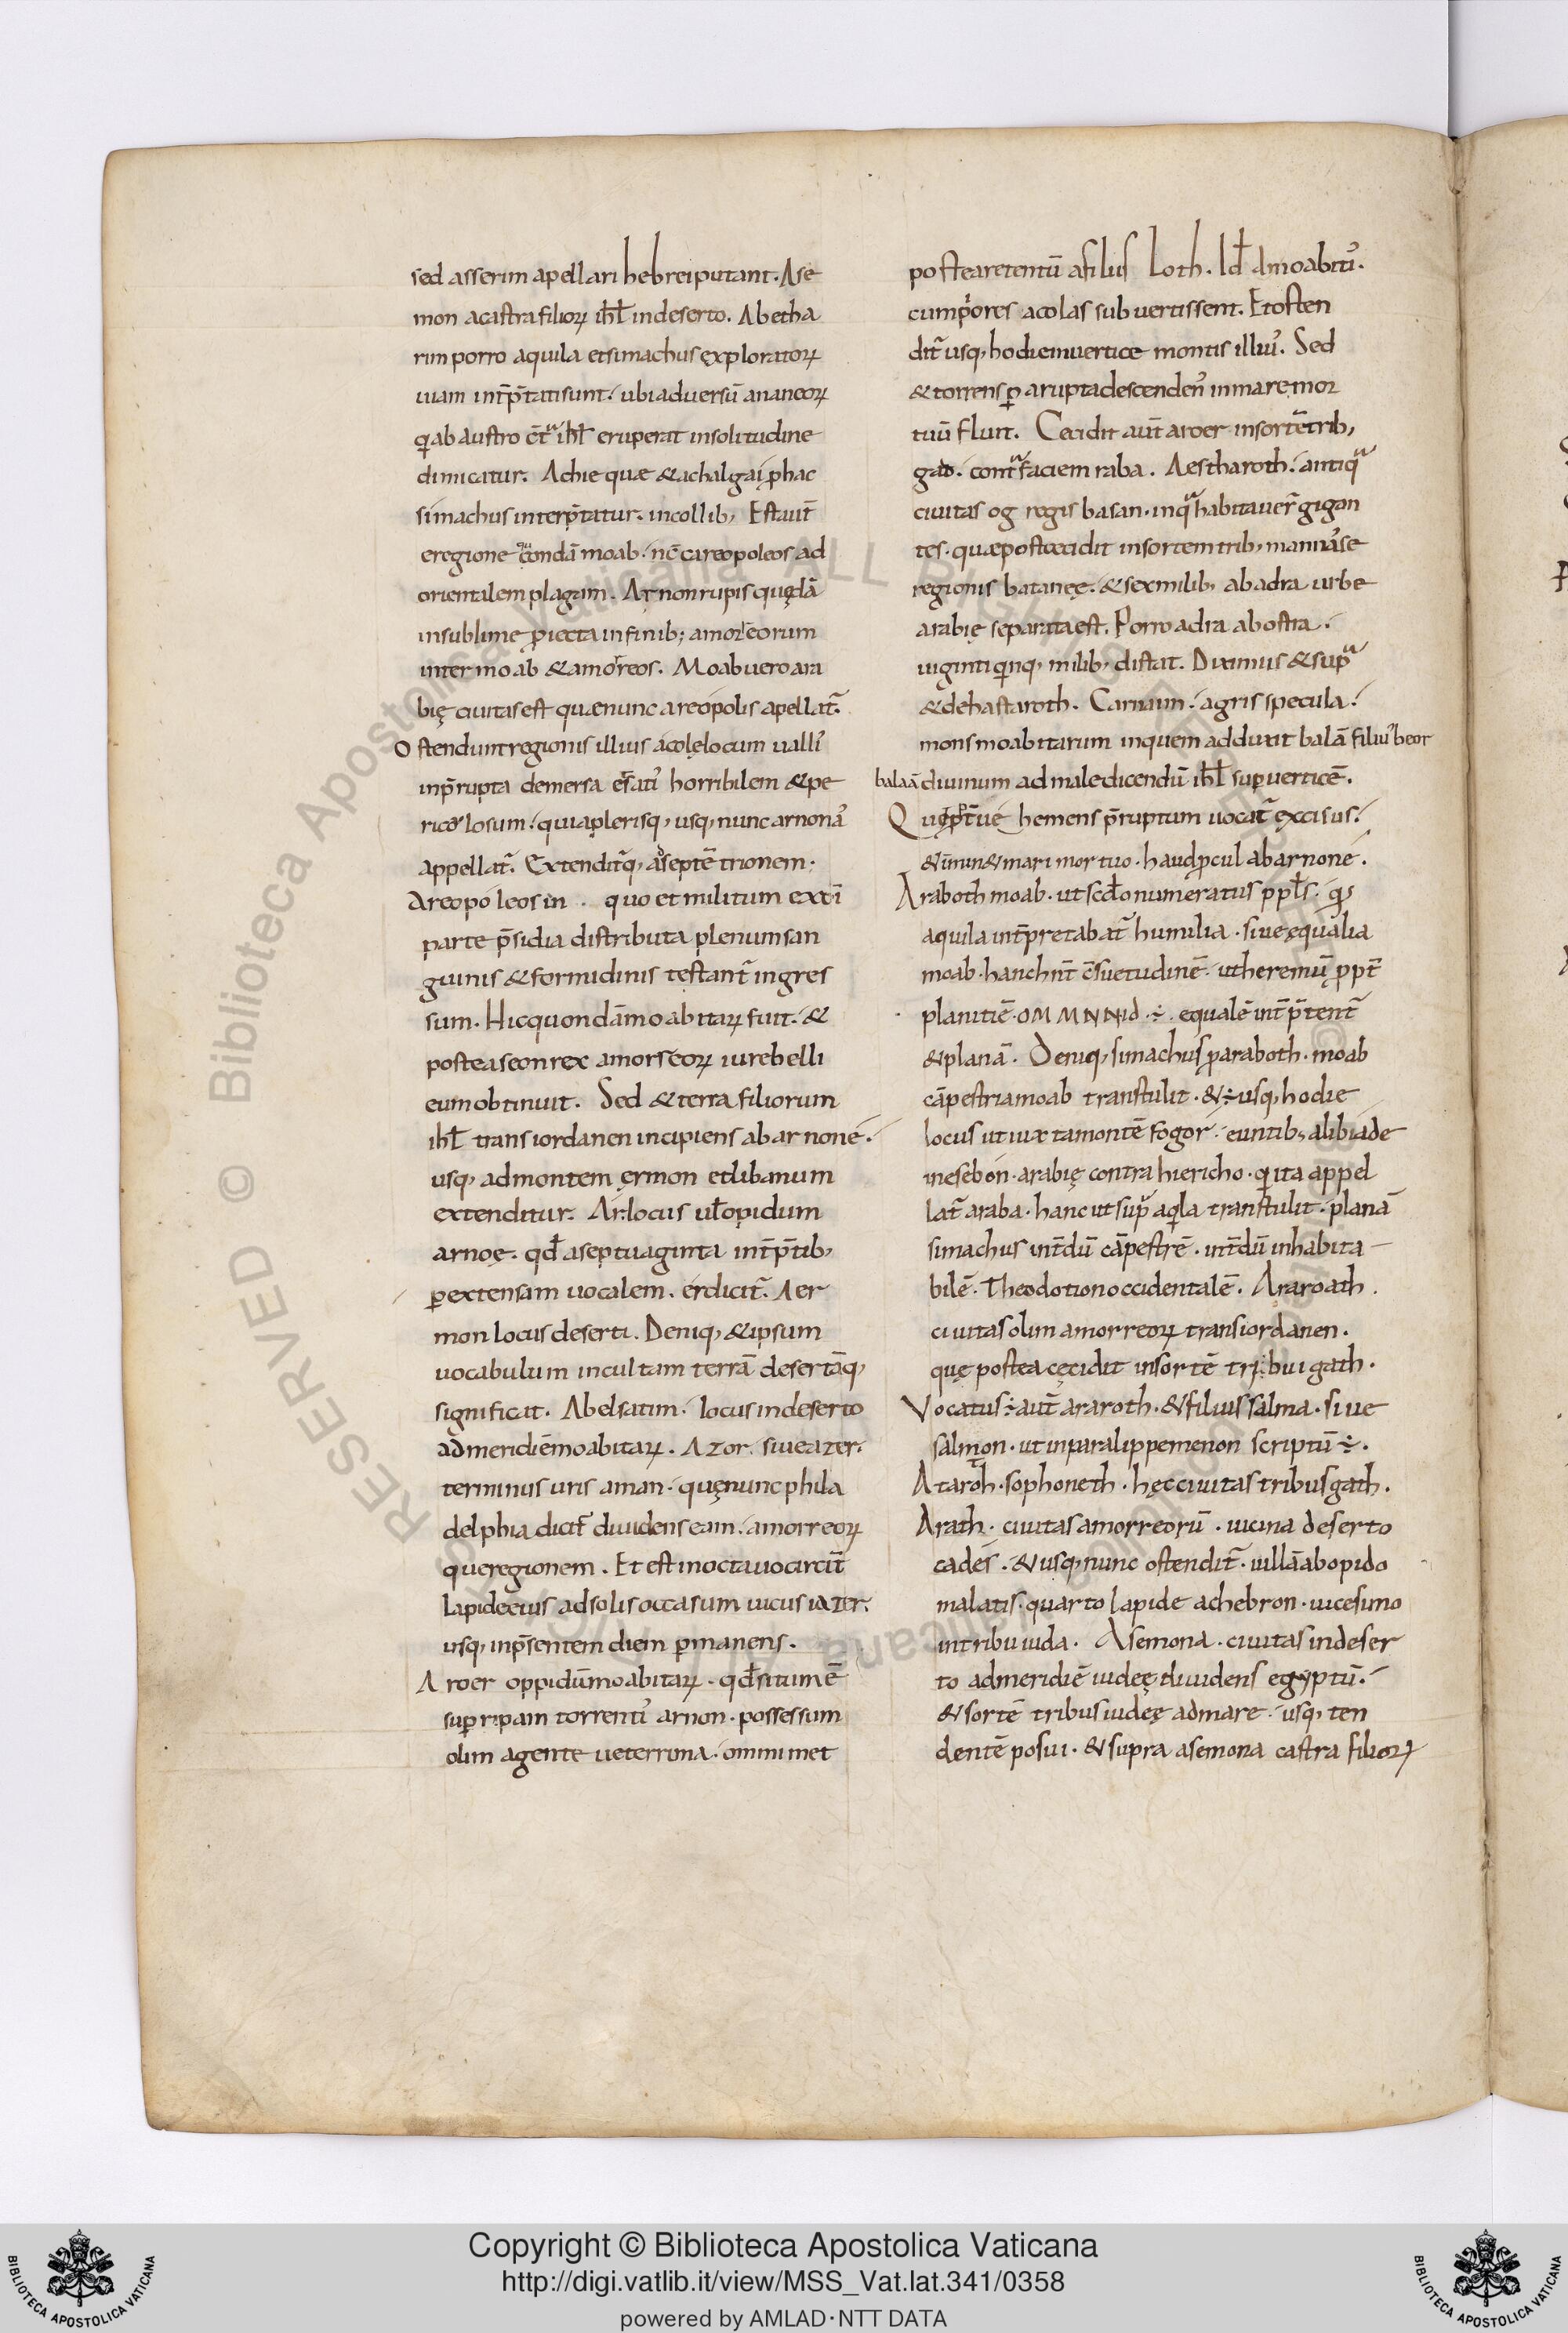 sed asserim apellari hebrei putant. Ase
mon acastra filioꝝ ihl̄ indeserto. Abetha
rim porro aquila et simachus exploratoꝝ
uiam int̄p̄tati sunt. ubi aduersū ananeoꝝ
qi ab austro c̄tᵃ ihl̄ eruperat insolitudine
dimicatur. Achie quæ & achalgai ꝓhac
simachus interp̄tatur. incollib; Est aut̄
eregione quondā moab. nc̄ careopoleos ad
orientalem plagam. Arnon rupis quędā
insublime ꝓiecta infinib; amorreorum
inter moab & amorreos. Moab uero ara
bię ciuitas est quæ nunc areopolis apellat᷑.
Ostendunt regionis illius acolę locum ualli᷒
inp̄rupta demersa ẜati᷒ horribilem & pe
ricolosum. qui aplerisq; usq; nunc arnona᷒
appellat᷑. Extendit᷑q; ad septētrionem.
Areopoleos in . quo et militum ex oī
parte p̄sidia distributa plenum san
guinis & formidinis testant᷑ ingres
sum. Hic quondā moabitaꝝ fuit. &
postea seon rex amorreoꝝ iure belli
eum obtinuit. Sed & terra filiorum
ihl̄ trans iordanen incipiens ab arnone.
usq; ad montem ęrmon et libanum
extenditur. Ar. locus ul̄ opidum
arnoę. qđ aseptuaginta int̄p̄tib;
ꝑ extensam uocalem. er dicit᷑. Aer
mon locus deserti. Deniq; & ipsum
uocabulum incultam terrā desertāq;
significat. Abelsatim. locus indeserto
ad meridiē moabitaꝝ. Azor. siue azer.
terminus uris aman. quę nunc phila
delphia dicit᷑ diuidens eam. amorreoꝝ
que regionem. Et est inoctauo circit̄
lapide eius ad solis occasum uicus iazer.
usq; inp̄sentem diem ꝑmanens.
Aroer oppidū moabitaꝝ. qđ situm ē
suꝑ ripam torrenti᷒ arnon. possessum
olim agente ueterrima. ommimet
postea retentū afiliis Loth. Id̄ dmoabiti᷒.
cum p̓ores acolas subuertissent. Et osten
dit᷑ usq; hodie inuertice montis illiu᷒. Sed
& torrens ꝑ arupta descenden᷒ in mare mor
tuū fluit. Cecidit aūt aroer insortē trib;
gad. contᵃ faciem raba. Aestharoth. antiqᵃ
ciuitas og regis basan. in qᵃ habitauer̄ gigan
tes. quæ post cecidit insortem trib; mannase
regionis bataneę. & sex milib; ab adra urbe
arabię separata est. Porro adra abostra.
uiginti qinq; milib; distat. Diximus & supᵃ
& de hastaroth. Carnaim. agris specula.
mons moabitarum inquem adduxit balā filiu᷒ beor
balaā diuinum ad maledicendū ihl̄ suꝑ uerticē.
Quę ꝓpt̄ uehemens p̄ruptum uocat᷑ excisus.
& īminet mari mortuo. haud ꝓcul ab arnone.
Araboth moab. ut sc̄do numeratus ppl̄s. qͥ;
aquila int̄pretabat᷑ humilia. siue ęqualia
moab. hanc hn̄t c̄suetudinē. ut heremū ꝓpt̄
planitiē. OMMNNId. ÷. equalē int̄p̄tent᷑
& planā. Deniq; simachus ꝓ araboth. moab
cāpestria moab transtulit. & ÷ usq; hodie
locus ut iuxta montē fogor. euntib; alibiade
inesebon. arabię contra hiericho. qi ita appel
lat᷑ araba. hanc ut supᵃ aqila transtulit. planā
simachus int̄dū cāpestrē. int̄dū inhabita
bilē. Theodotion occidentalē. Araroath.
ciuitas olim amorreoꝝ trans iordanen.
quę postea cęcidit insortē tribui gath.
Vocatus ÷ aūt araroth. & filius salma. siue
salmon. ut inparalippemenon scriptū ÷.
Ataroh. sophoneth. hęc ciuitas tribus gath.
Arath. ciuitas amorreorū. uicina deserto
cades. & usq; nunc ostendit᷑. uillā ab opido
malatis. quarto lapide achebron. uicesimo
intribu iuda. Asemona. ciuitas indeser
to ad meridiē iudeę diuidens egyptū.
& sortē tribus iudeę ad mare. usq; ten
dentē posui. & supra asemona castra filioꝝ
Copyright © Biblioteca Apostolica Vaticana
http://digi.vatlib.it/view/MSS_Vat.lat.341/0358
powered by AMLAD·NTT DATA
BIBLIOTECA APOSTOLICA VATICANA
BIBLIOTECA APOSTOLICA VATICANA